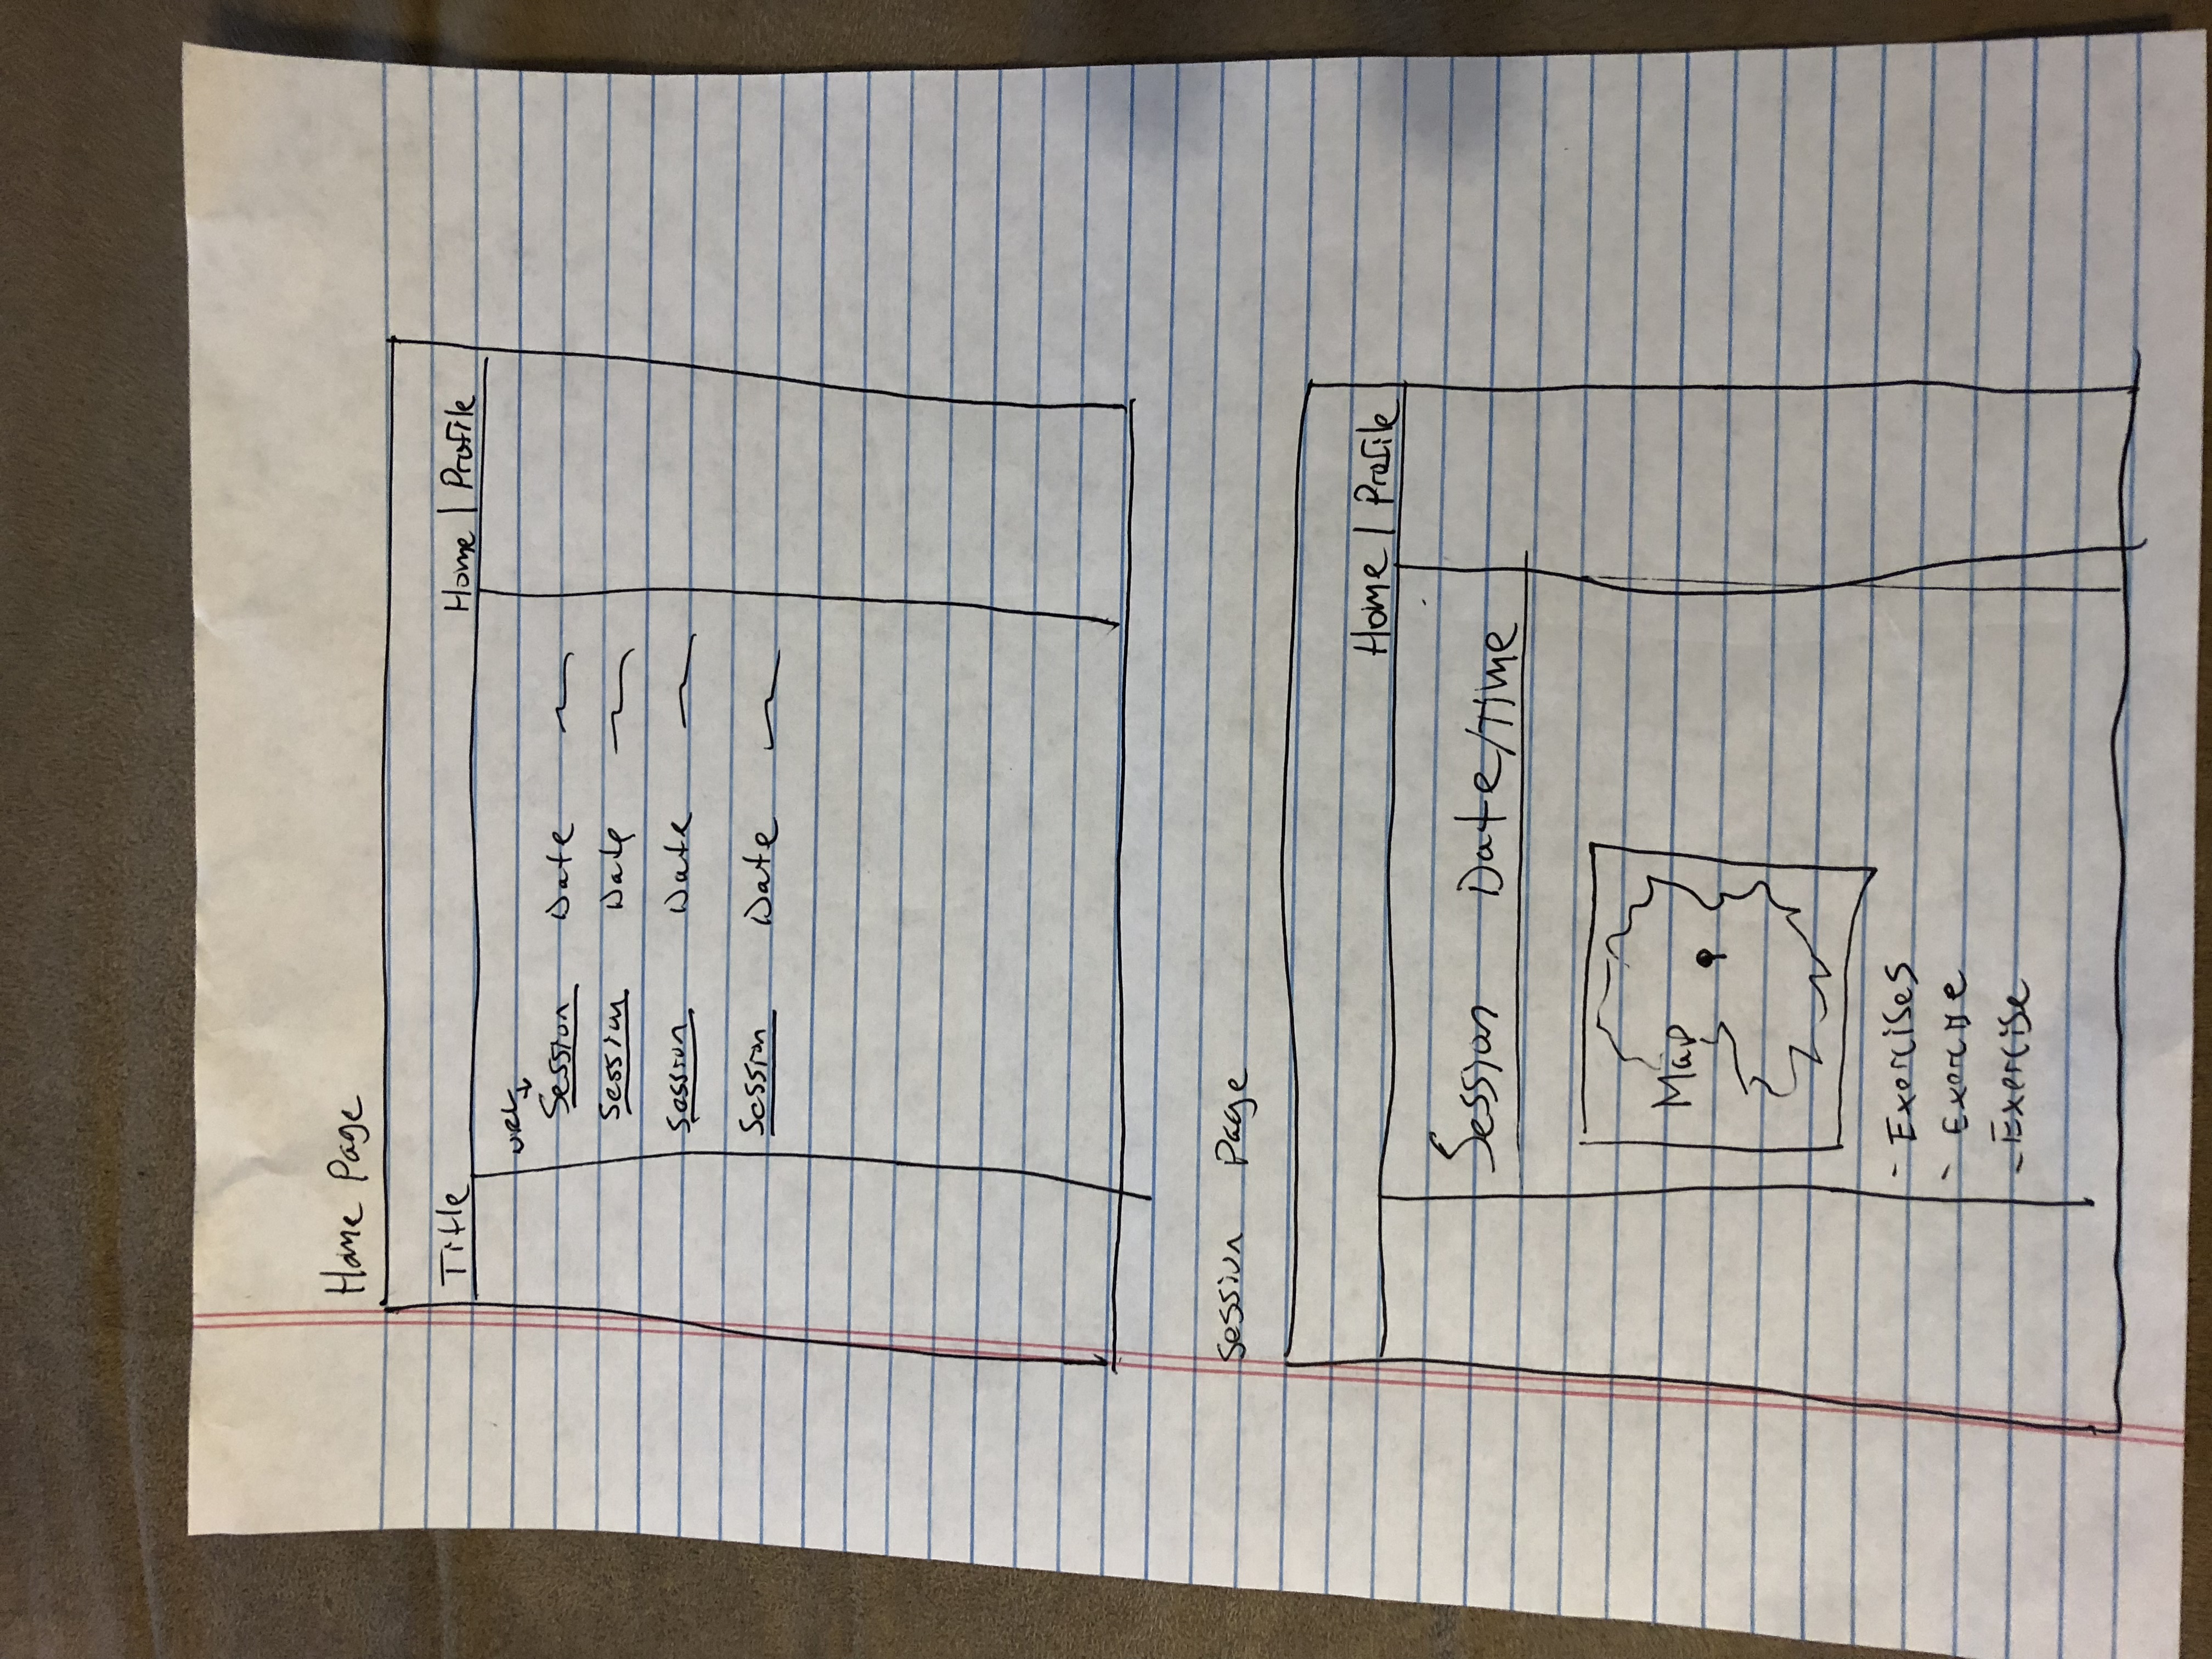 Home Page
Title Home | Profile
URL
Session Date
Session Date
Session Date
Session Date
Session Page
Home | Profile
Session Date/Time
Map
- Exercises
- Exercise
- Exercise